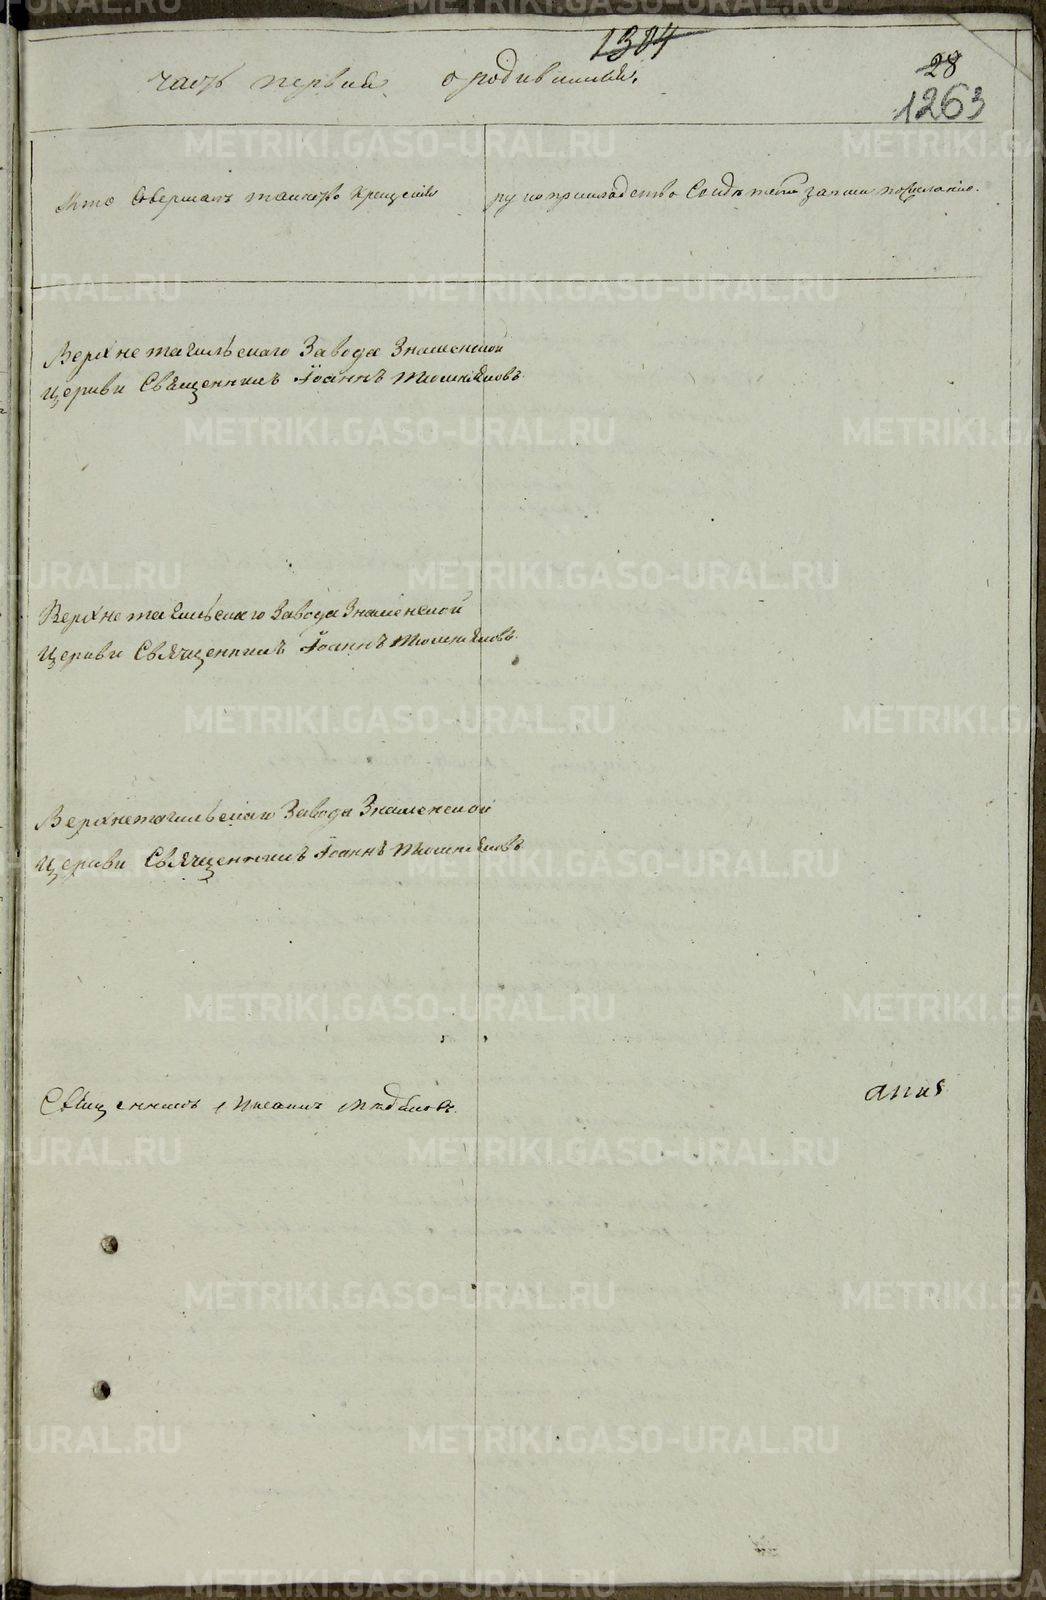 1304
28
1263
часть первая о родившихся.
Кто совершалъ таинство крещенія
рукоприкладство свидѣтелей записи по желанію.
Верхнетагильскаго Завода Знаменской
Церкви Священникъ Іоаннъ
Верхнетагильскаго Завода Знаменской
Церкви Священникъ Іоаннъ
Верхнетагильскаго Завода Знаменской
Церкви Священникъ Іоаннъ
Священникъ
METRIKI.GASO-URAL.RU